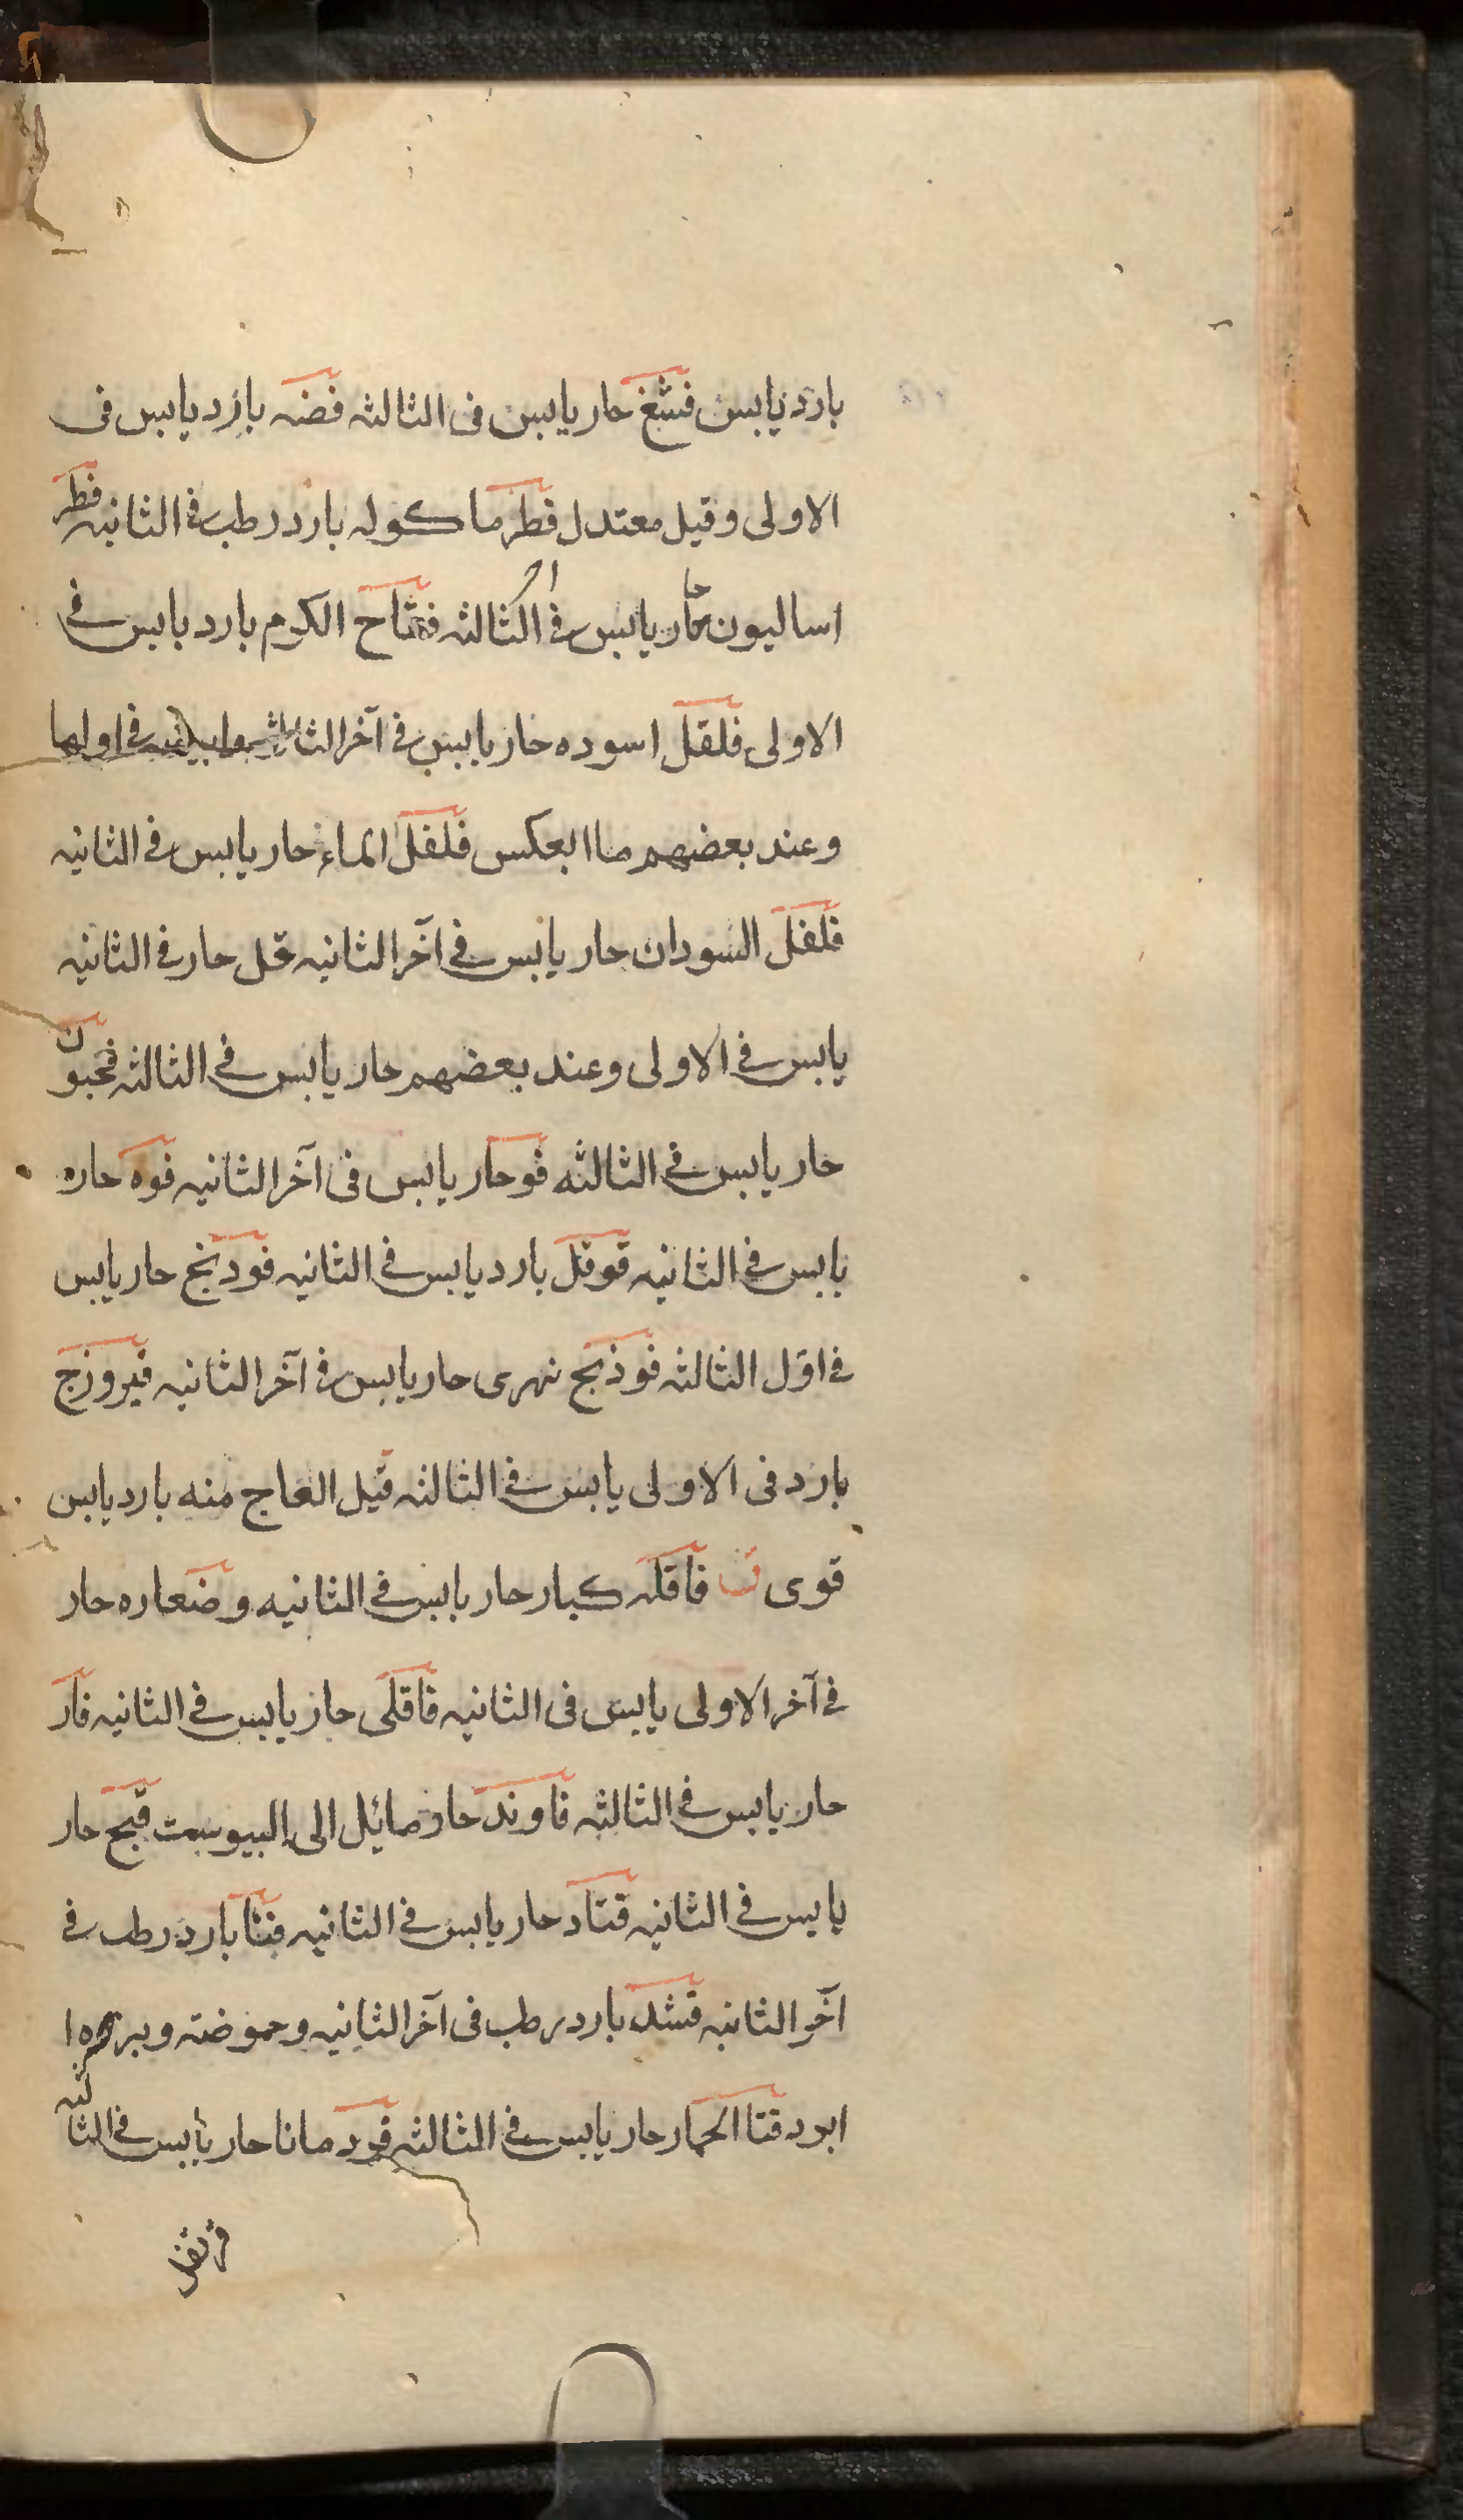 بارد يابس فشغ حار يابس فى الثالثه فضه بارد يابس فى
الاولى وقيل معتدل فطر ماكوله بارد رطب فى الثانيه فطر
اساليون حار يابس فى الثالثه فقاح الكرم بارد يابس فى
الاولى فلفل اسوده حار يابس فى آخر الثالثه وابيضه فى اولها
وعند بعضهم ماابعكس فلفل الماء حار يابس فى الثانيه
فلفل السودان حار يابس فى آخر الثانيه فل حار فى الثانيه
يابس فى الاولى وعند بعضهم حار يابس فى الثالثه فنجيون
حار يابس فى الثالثه فو حار يابس فى آخر الثانيه فوه حاره
يابس فى الثانيه فوفل بارد يابس فى الثانيه فودنج حار يابس
فى اول الثالثه فوذنج نهرى حار يابس فى آخر الثانيه فيروزج
بارد فى الاولى يابس فى الثالثه فيل العاج منه بارد يابس
قوى ق قاقله كبار حار يابس فى الثانيه وصغاره حار
فى آخر الاولى يابس فى الثانيه قاقلى حار يابس فى الثانيه قار
حار يابس فى الثالثه قاوند حار مائل الى اليبوست قبج حار
يابس فى الثانيه قتاد حار يابس فى الثانيه قثا بارد رطب فى
آخر الثانيه قثد بارد رطب فى آخر الثانيه وحموضته
ابرد قثا الحمار حار يابس فى الثالثه قردمانا حار يابس فى الثالثه
قرنفل